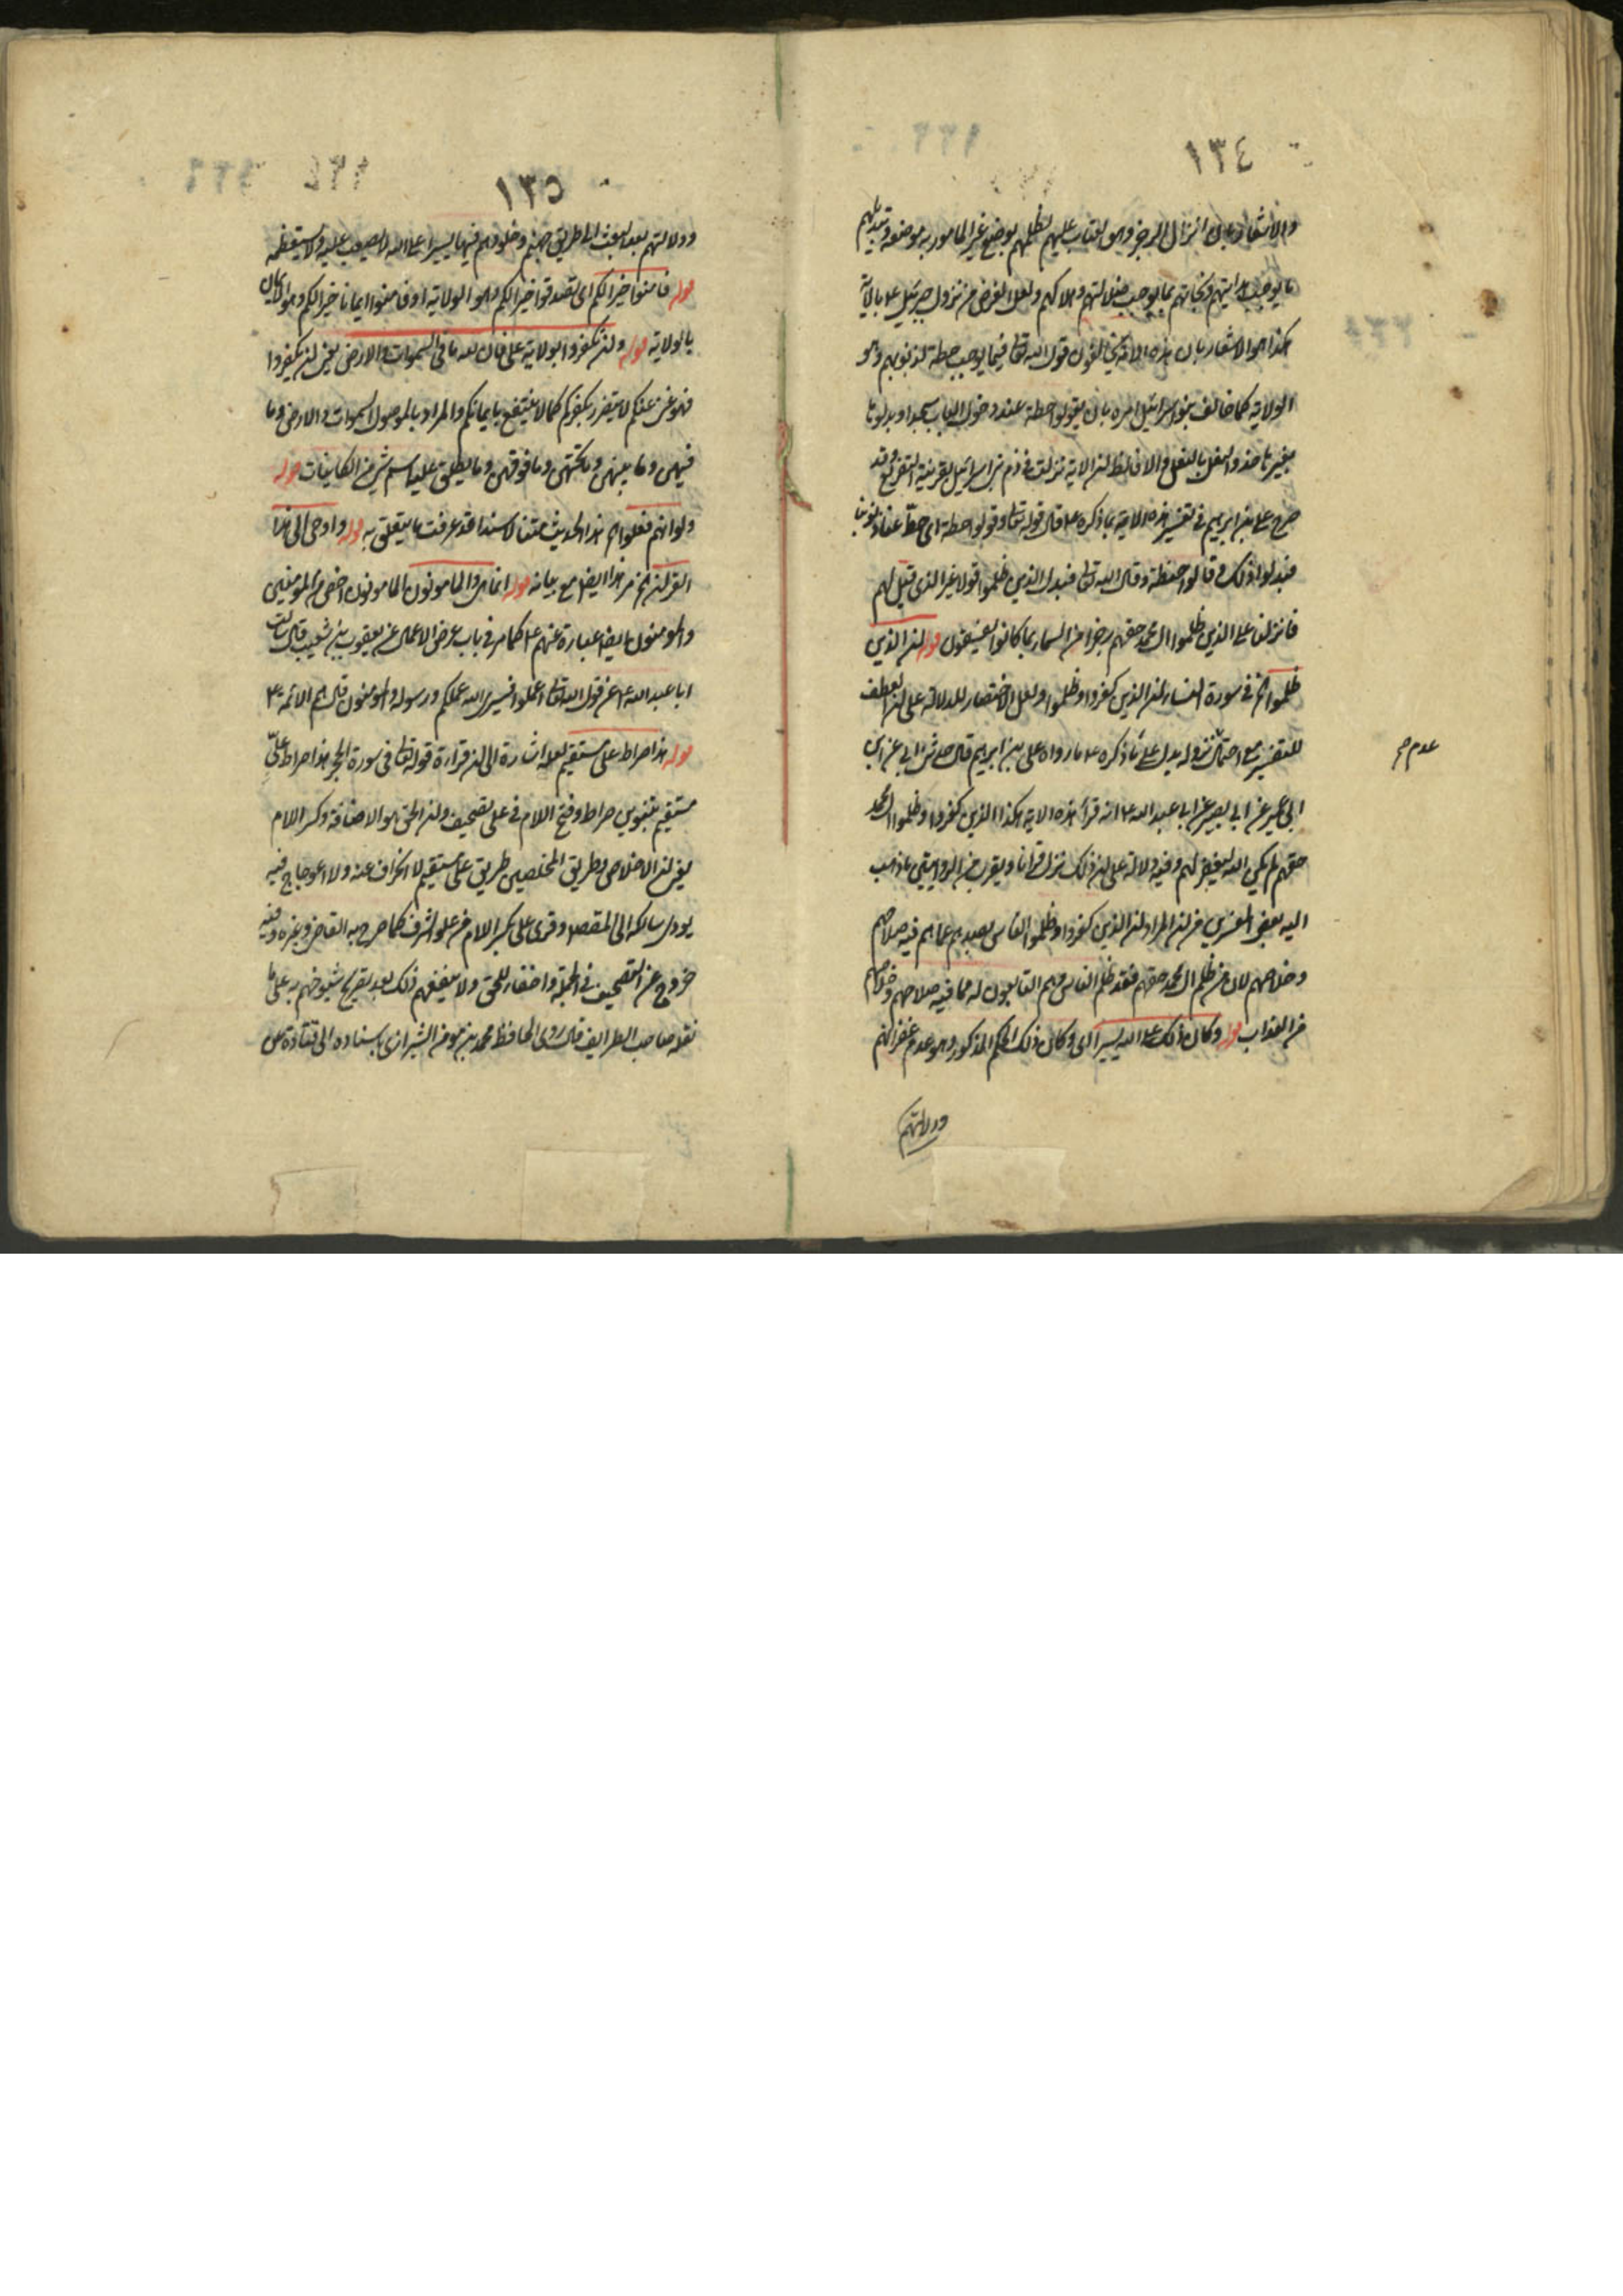 ١٣٤
والاشعار بان انزال الرجز وهو العذاب عليهم لظلمهم بوضع غير المأمور به موضعه وتبديلهم
ما يوجب هدايتهم ونجاتهم بما يوجب ضلالتهم وهلاكهم ولعل الغرض من نزول جبرئيل ع بالآية
هكذا هو الاشعار بان هذه الامة يخالفون قول الله تعالى فيما يوجب حطة لذنوبهم وهو
الولاية كما خالف بنو اسرائيل امره بان يقولوا حطة عند دخول الباب سجدا وبدلوها
بغيرها حذو النعل بالنعل والا فالظ ان الاية نزلت في ذم بني اسرائيل بقرينة التفريع وقد
صرح علي بن ابرهيم في تفسير هذه الاية بما ذكره ع قال قوله تعالى وقولوا حطة اى حط عنا ذنوبنا
فبدلوا ذلك وقالوا حنطة وقال الله تعالى فبدل الذين ظلموا قولا غير الذى قيل لهم
فانزلنا على الذين ظلموا ال محمد حقهم رجزا من السماء بما كانوا يفسقون قوله ان الذين
ظلموا الخ في سورة النساء ان الذين كفروا وظلموا ولعل الاختصار للدلالة على ان العطف
للتفسير مع احتمال نزوله يدل على ما ذكره ع ما رواه على بن ابرهيم قال حدثنى ابي عن ابن
ابى عمير عن ابي بصير عن ابي عبد الله ع انه قرأ هذه الاية هكذا ان الذين كفروا وظلموا ال محمد
حقهم لم يكن الله ليغفر لهم وفيه دلالة على ان ذلك نزل قرانا ويقرب من الروايتين ما ذهب
اليه بعض المفسرين من ان المراد ان الذين كفروا وظلموا الناس بصدهم عما هم فيه صلاحهم
وخلاصهم لان من ظلم ال محمد حقهم فقد ظلم الناس وهم التابعون له مما فيه صلاحهم وخلاصهم
من العذاب قوله وكان ذلك على الله يسيرا اى وكان ذلك الحكم المذكور وهو عدم غفرانهم
ودلالتهم
عدم صح
١٣٥
ودلالتهم بعد البعث الى طريق جهنم وخلودهم فيها يسيرا على الله لا يصعب عليه ولا يستعظمه
قوله فامنوا خيرا لكم اى تصدقوا خيرا لكم وهو الولاية او فامنوا ايمانا خيرا لكم وهو الايمان
بالولاية قوله وان تكفروا بولاية على فان لله ما في السموات والارض يعنى ان تكفروا
فهو غنى عنكم لا يتضرر بكفركم كما لا ينتفع بايمانكم والمراد بالموصول السموات والارض وما
فيهن وما بينهن وما تحتهن وما فوقهن وما يطلق عليه اسم شئ من الكاينات قوله
ولو انهم فعلوا الخ هذا الحديث متنا لا سندا قد عرفت ما يتعلق به قوله واوحى الى هذا
القران الخ مر هذا ايضا مع بيانه قوله انما هي والمامونون المامونون اخص من المؤمنين
والمؤمنون ايضا عبارة عنهم ع كما مر في باب عرض الاعمال عن يعقوب بن شعيب قال سألت
ابا عبد الله ع عن قول الله تعالى اعملوا فسيرى الله عملكم ورسوله والمومنون قال هم الائمة ع
قوله هذا صراط على مستقيم لعله اشارة الى ان قراءة قوله تعالى في سورة الحجر هذا صراط علىّ
مستقيم بتنوين صراط وفتح اللام في على تصحيف وان الحق هو الاضافة وكسر اللام
يعنى ان الاخلاص وطريق المخلصين طريق على مستقيم لا انحراف عنه ولا اعوجاج فيه
يودى سالكه الى المقصد وقرئ على بكسر اللام من علو الشرف كما صرح به القاضي وغيره وفيه
خروج عن التصحيف في الجملة واخفاء للحق ولا ينفعهم ذلك بعد تصريح شيوخهم به على ما
نقله صاحب الطرايف قال روى الحافظ محمد بن مومن الشيرازى باسناده الى قتادة عن